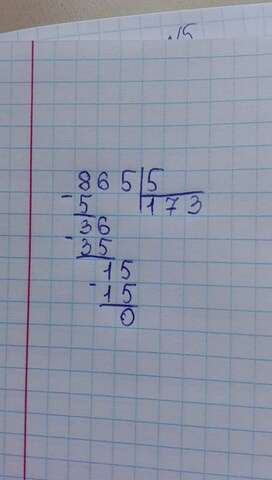 865|5
-5 173
36
-35
15
-15
0